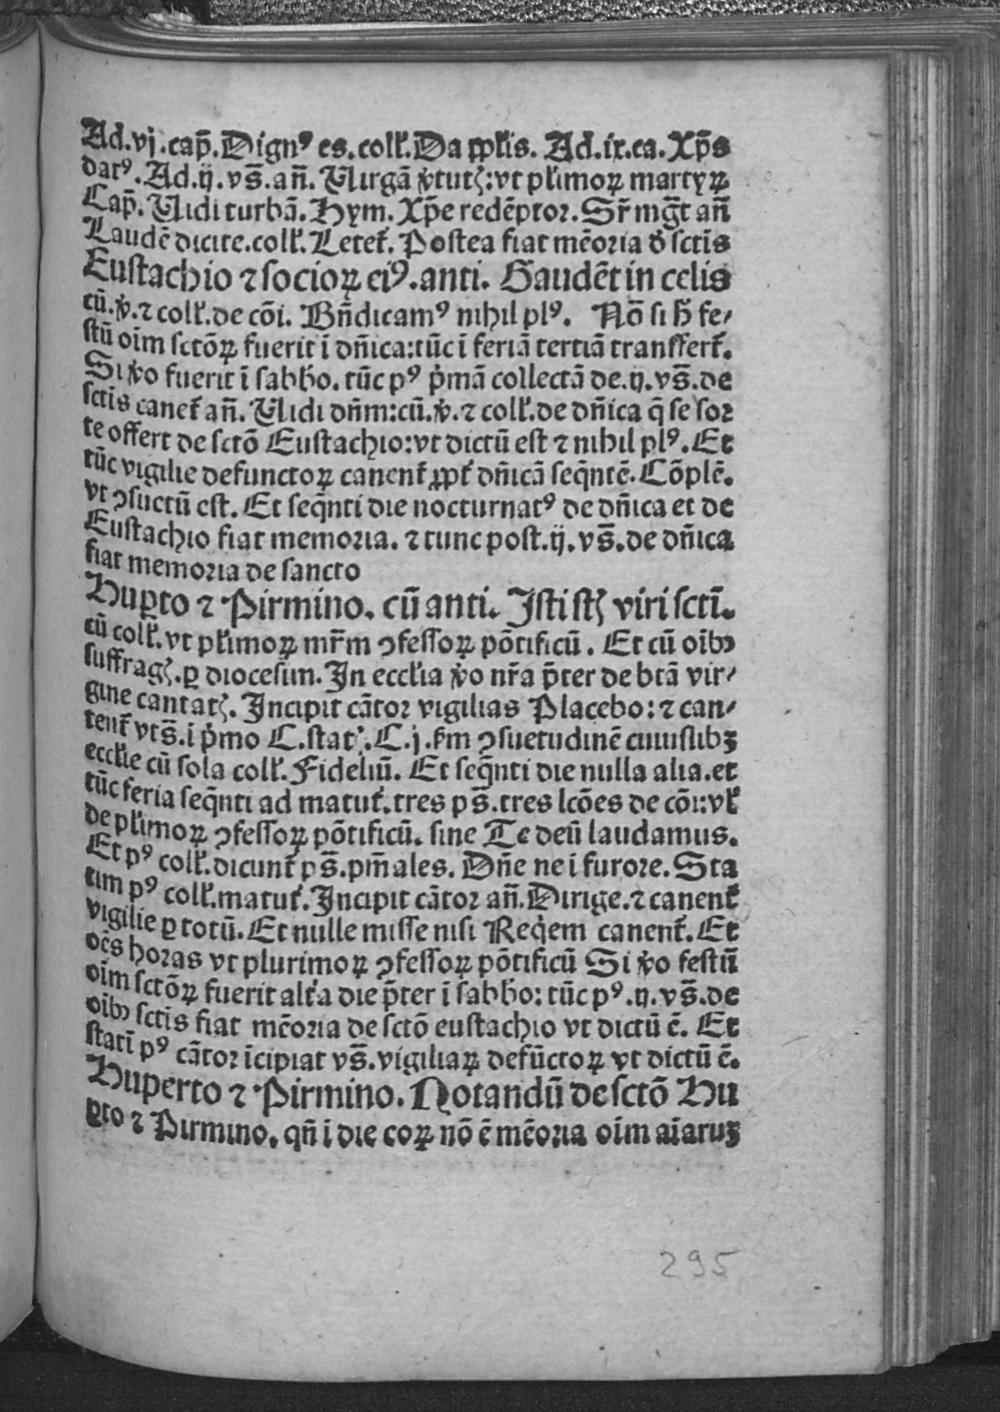 Ad.vj.cap̄.Dignꝰ es.coll̓.Da ꝓp̄lis. Ad.ix.ca.Xp̄s
datꝰ.Ad.ij.vs̄.an̄.Virgā v̓tutꝭ:vt pl̓imoꝝ martyꝝ
Cap̄.Vidi turbā.Hym.Xp̄e redēptor.Sr̄ mḡt an̄
Laudē dicite.coll̓.Letet̓.Postea fiat mēoria d̓ sctīs
Eustachio ⁊ socioꝝ eiꝰ.anti. Gaudēt in celis
cū.v̓.⁊ coll̓.de cōi. Bn̄dicamꝰ nihil plꝰ. Nō si h̄ fe⸗
stū oīm sctōꝝ fuerit ī dn̄ica:tūc ī feriā tertiā transfert̓.
Si v̓o fuerit ī sabb̄o.tūc pꝰ p̓mā collectā de.ij.vs̄.de
sctīs canet̓ an̄.Vidi dn̄m:cū.v̓.⁊ coll̓.de dn̄ica q̄ se for
te offert de sctō Eustachio:vt dictū est ⁊ nihil plꝰ.Et
tūc vigilie defunctoꝝ canent̓ ꝓpt̓ dn̄icā seq̄ntē.Cōplē.
vt ꝯsuctū est.Et seq̄nti die nocturnatꝰ de dn̄ica et de
Eustachio fiat memoria.⁊ tunc post.ij.vs̄.de dn̄ica
fiat memoria de sancto
Huꝑto ⁊ Pirmino. cū anti. Isti stꝭ viri sctī.
cū coll̓.vt pl̓imoꝝ mr̄m ꝯfessoꝝ pōtificū. Et cū oībꝰ
suffragꝭ.ꝑ diocesim.In eccl̓ia v̓o nr̄a p̄ter de btā vir⸗
gine cantatꝭ. Incipit cātor vigilias Placebo:⁊ can⸗
tent̓ vts̄.ī p̓mo C.statꝰ.C.j.scd̄m ꝯsuetudinē cuiuslibꝫ
eccl̓ie cū sola coll̓.Fideliū. Et seq̄nti die nulla alia.et
tūc feria seq̄nti ad matut̓.tres ps̄.tres lcōes de cōi:vl̓
de pl̓imoꝝ ꝯfessoꝝ pōtificū. sine Te deū laudamus.
Et pꝰ coll̓.dicunt̓ ps̄.pn̄iales. Dn̄e ne ī furore.Sta
tim pꝰ coll̓.matut̓.Incipit cātor an̄.Dirige.⁊ canent̓
vigilie ꝑ totū.Et nulle misse nisi Req̓em canent̓.Et
oēs horas vt plurimoꝝ ꝯfessoꝝ pōtificū Si v̓o festū
oīm sctōꝝ fuerit alt̓a die p̄ter ī sabb̄o:tūc pꝰ.ij.vs̄.de
oībꝰ sctīs fiat mēoria de sctō eustachio vt dictū ē. Et
statī pꝰ cātor īcipiat vs̄.vigiliaꝝ defūctoꝝ vt dictū ē.
Huperto ⁊ Pirmino. Notandū de sctō Hu
ꝑto ⁊ Pirmino. qn̄ ī die eoꝝ nō ē mēoria oīm aīarum
295